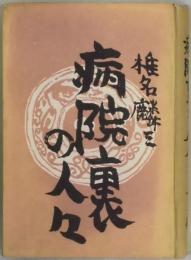 椎名麟三
病院裏
の人々